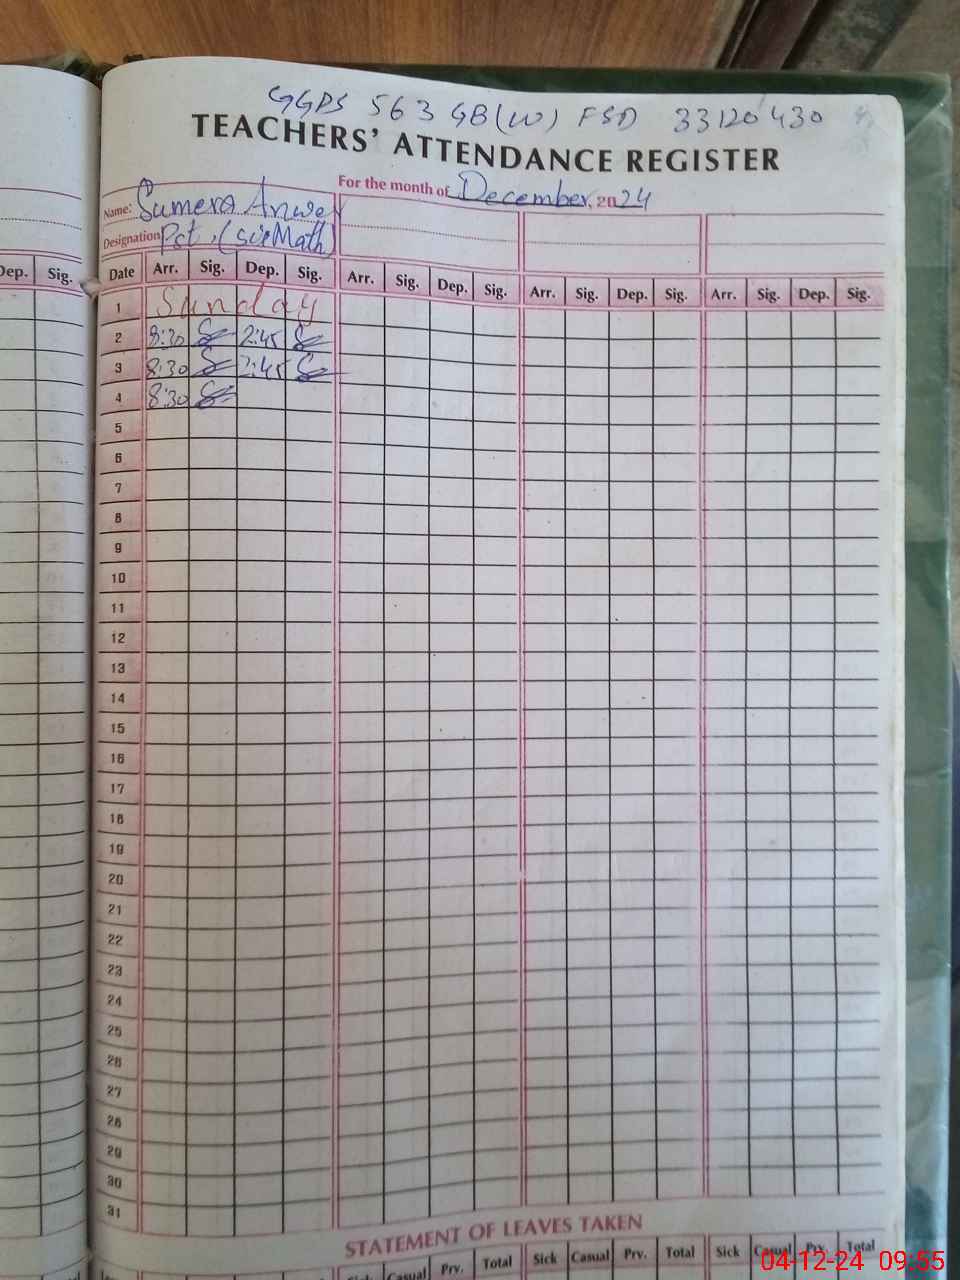 GGPS 563 GB(W) FSD 33120430
TEACHERS' ATTENDANCE REGISTER
For the month of December, 2024
Name: Sumera Anwer
Designation Pst, (sci Math)
Dep. Sig.
Date Arr. Sig. Dep. Sig. Arr. Sig. Dep. Sig. Arr. Sig. Dep. Sig. Arr. Sig. Dep. Sig.
1 Sunday
2 8:30 2:45
3 8:30 2:45
4 8:30
5
6
7
8
9
10
11
12
13
14
15
16
17
18
19
20
21
22
23
24
25
26
27
28
29
30
31
STATEMENT OF LEAVES TAKEN
Casual Prv. Total Sick Casual Prv. Total Sick Casual Prv. Total
04-12-24 09:55